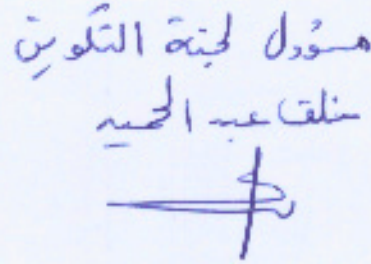 مسؤول لجنة التكوين
عبد الحميد